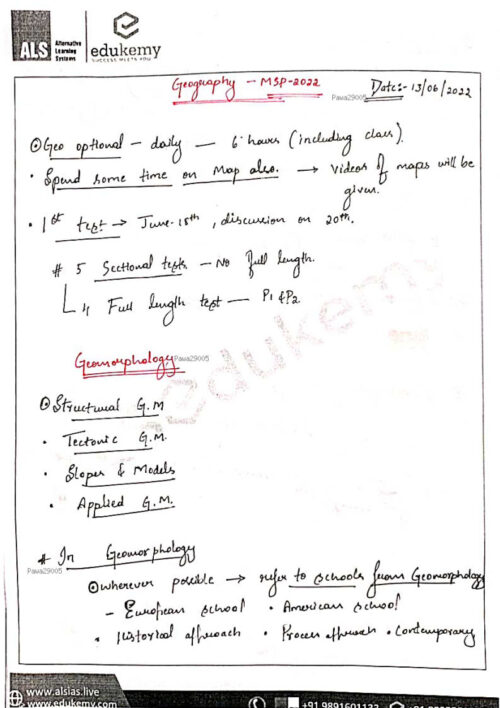 ALS Alternative Learning Systems edukemy
SUCCESS MEETS YOU
Geography - MSP-2022 Date:- 13/06/2022
Pawa29005
Geo optional - daily - 6 hours (including class).
Spend some time on Map also. → Videos of maps will be
given.
1st test → June-18th, discussion on 20th.
# 5 Sectional tests - No full length.
4 Full length test - P1 & P2
edukemy
Geomorphology Pawa29005
Structural G.M
Tectonic G.M.
Slopes & Models
Applied G.M.
# In Geomorphology
Pawa29005
wherever possible → refer to schools from Geomorphology
- European school • American school
• Historical approach • Process approach • Contemporary
www.alsias.live
www.edukemy.com +91 9891601133